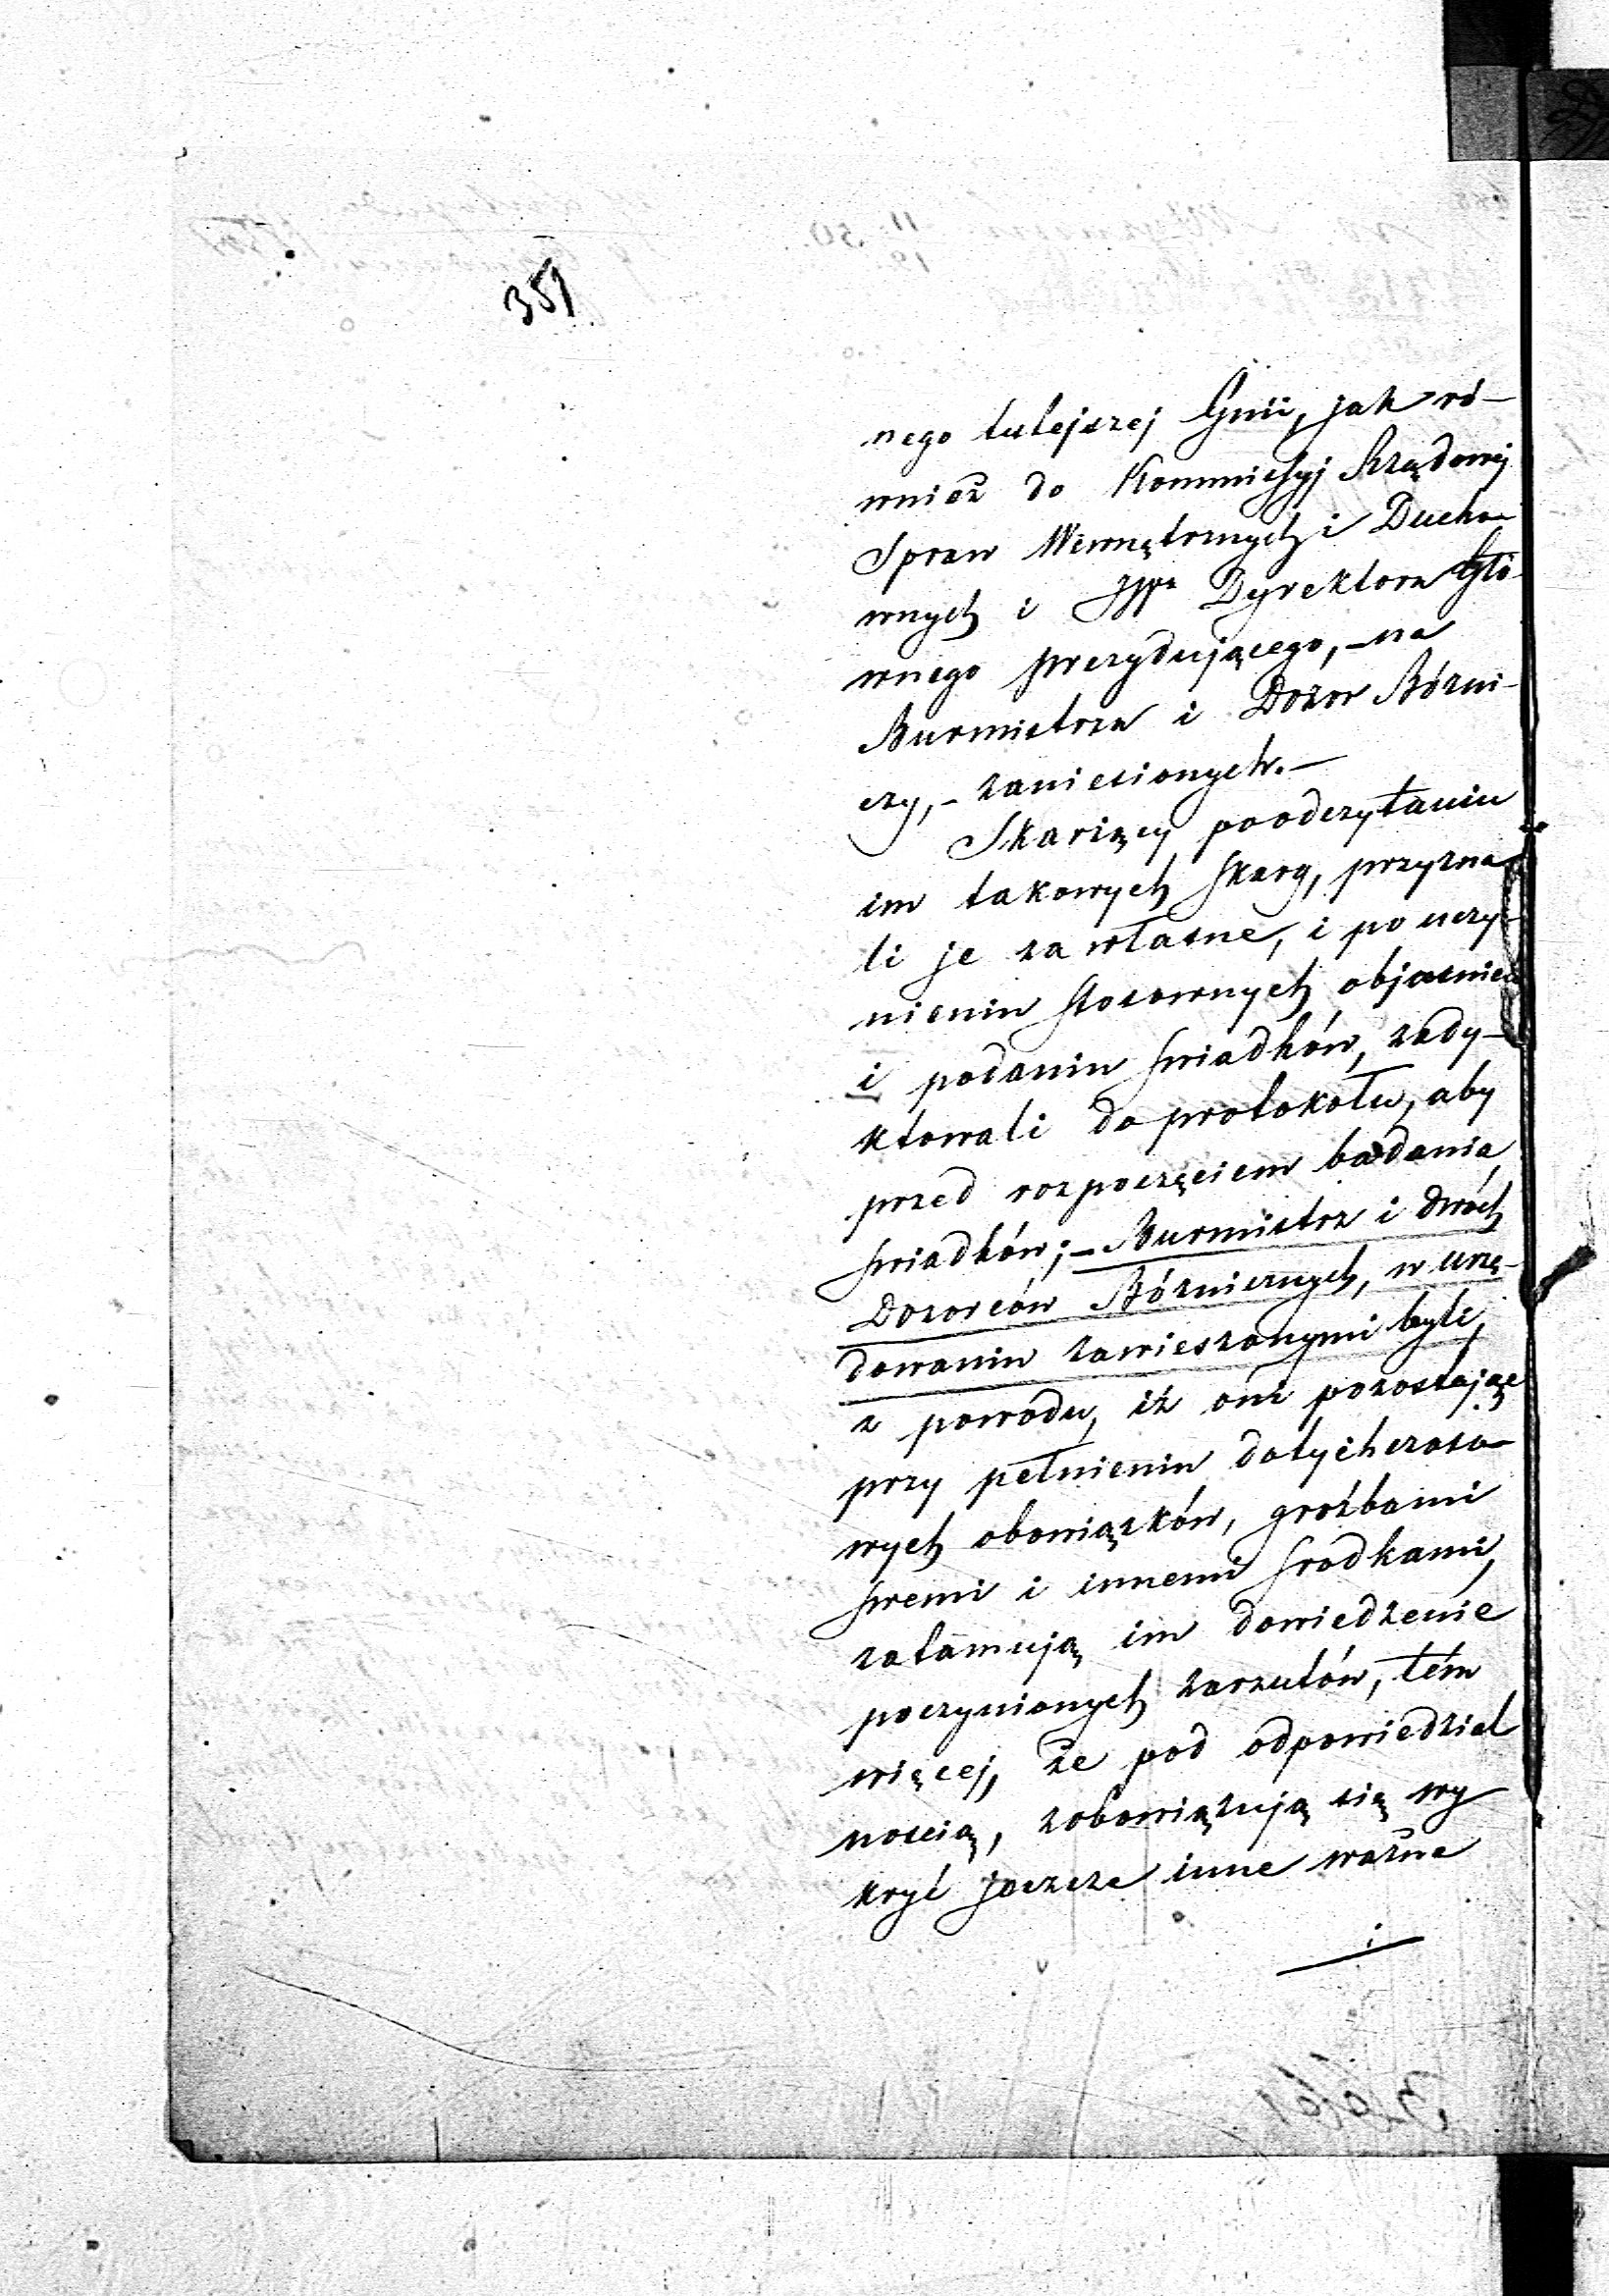 351
nego tutejszej Gnii, jak ró-
wnież do Kommissyj Rządowej
Spraw Wewnętrznych i Ducho-
wnych i JWa Dyrektora Głó-
wnego prezydującego, - na
Burmistrza i Dozor Bóżni-
czy, - zaniesionych. -
Skarżący po odczytaniu
im takowych skarg, przyzna-
li je za własne, i po uczy-
nieniu stosownych objasnień
i podaniu swiadków, zady-
ktowali do protokołu, aby
przed rozpoczęciem badania
swiadków; - Burmistrz i dwóch
Dozorców Bóżniczych, w urzę-
dowaniu zawieszonymi byli,
z powodu, iż oni pozostając
przy pełnieniu dotychczaso-
wych obowiązków, groźbami
swemi i innemi srodkami,
zatamują im dowiedzenie
poczynionych zarzutów, tém
więcej, że pod odpowiedzial
noscią, zobowiązują się wy
kryć jeszcze inne ważne